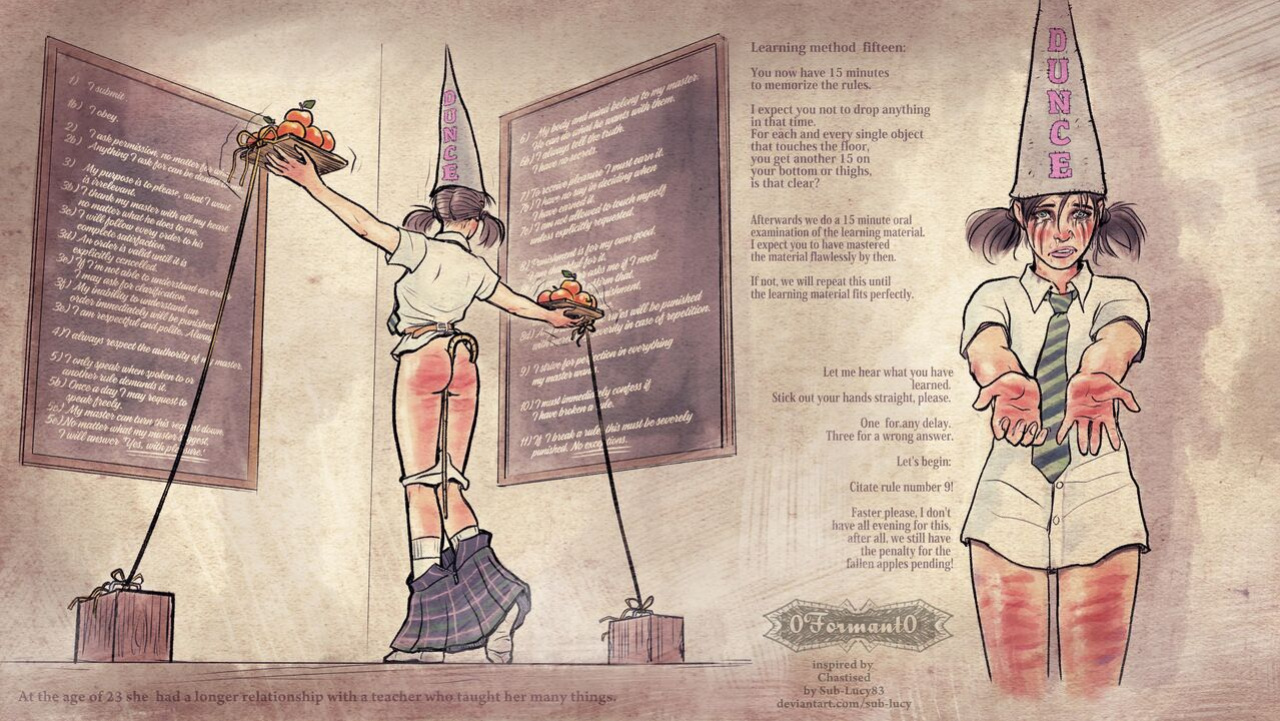 1) I submit
1b) I obey.
2) I ask permission, no matter for
2b) Anything I ask for can be denied
3) My purpose is to please, what I want
is irrelevant.
3b) I thank my master with all my heart
no matter what he does to me.
3c) I will follow every order to his
complete satisfaction.
3d) An order is valid until it is
explicitly cancelled.
3e) If I'm not able to understand an order
I may ask for clarification.
3f) My inability to understand an
order immediately will be punished
I am respectful and polite. Always
4) I always respect the authority of my master.
5) I only speak when spoken to or
another rule demands it.
5b) Once a day I may request to
speak freely.
My master can turn this request down.
No matter what my master
I will answer "Yes, with pleasure!"
DUNCE
6) My body and mind belong to my master.
He can do what he wants with them.
6b) I always tell the truth.
I have no secrets.
7) To receive pleasure I must earn it.
I have no say in deciding when
I have earned it.
I am not allowed to touch myself
unless explicitly requested.
8) Punishment is for my own good.
for it.
asks me if I need
be punished
in case of repetition.
9) I strive for perfection in everything
my master
10) I must immediately confess if
I have broken a rule.
11) If I break a rule this must be severely
punished. No exceptions.
Learning method fifteen:
You now have 15 minutes
to memorize the rules.
I expect you not to drop anything
in that time.
For each and every single object
that touches the floor,
you get another 15 on
your bottom or thighs,
is that clear?
Afterwards we do a 15 minute oral
examination of the learning material.
I expect you to have mastered
the material flawlessly by then.
If not, we will repeat this until
the learning material fits perfectly.
Let me hear what you have
learned.
Stick out your hands straight, please.
One for any delay.
Three for a wrong answer.
Let's begin:
Citate rule number 9!
Faster please, I don't
have all evening for this,
after all, we still have
the penalty for the
fallen apples pending!
DUNCE
0Formant0
inspired by
Chastised
by Sub-Lucy83
deviantart.com/sub-lucy
At the age of 23 she had a longer relationship with a teacher who taught her many things.